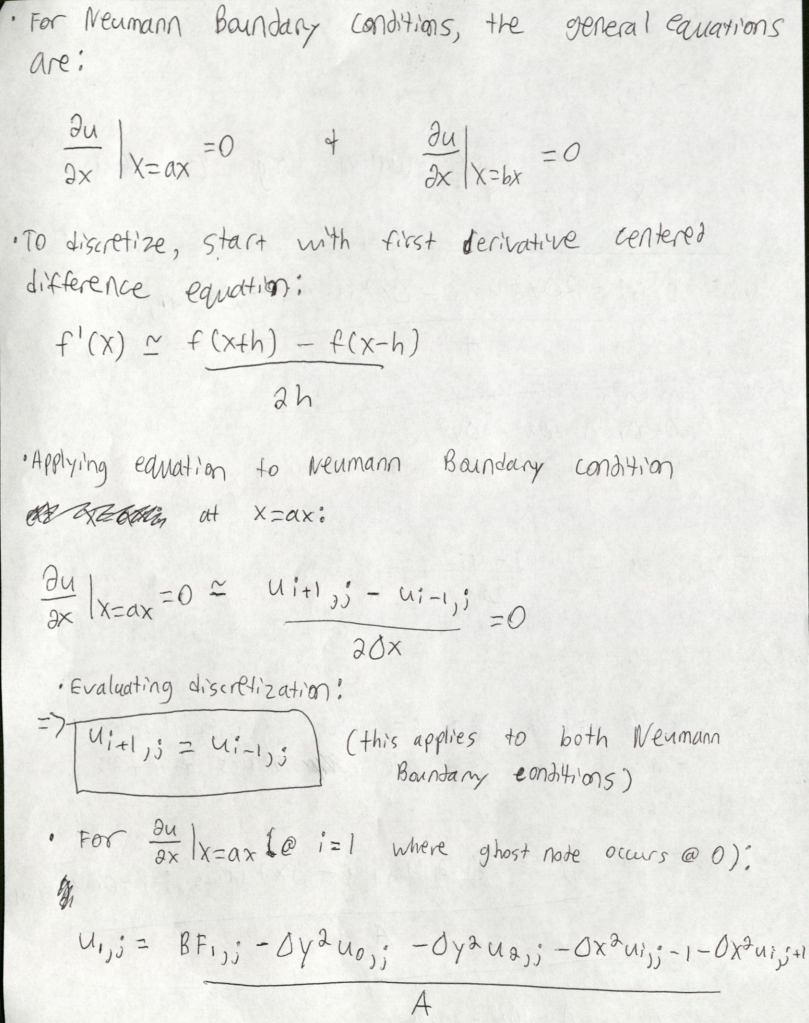 · For Neumann Boundary Conditions, the general equations
are:
∂u/∂x |x=ax =0 & ∂u/∂x |x=bx =0
· To discretize, start with first derivative centered
difference equation:
f'(x) ≃ f(x+h) - f(x-h)
2h
· Applying equation to Neumann Boundary condition
at x=ax:
∂u/∂x |x=ax =0 ≃ (ui+1,j - ui-1,j)/2Δx =0
· Evaluating discretization:
=> ui+1,j = ui-1,j (this applies to both Neumann
Boundary conditions)
· For ∂u/∂x |x=ax (@ i=1 where ghost node occurs @ 0):
u1,j = BF1,j - Δy²u0,j - Δy²u2,j - Δx²ui,j-1 - Δx²ui,j+1
A